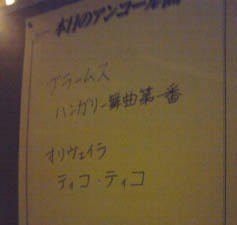 本日のアンコール曲
ブラームス
ハンガリー舞曲第一番
オリヴェイラ
ティコ・ティコ